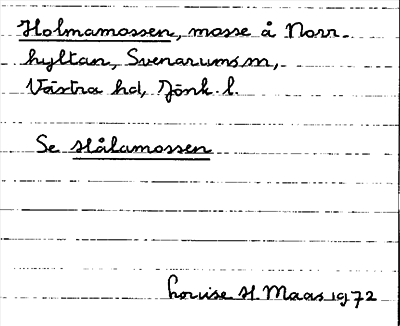 Holmamossen, mosse å Norr-
hyltan, Svenarums sn,
Västra hd, Jönk. l.
Se Hålamossen
Louise H. Maas 1972